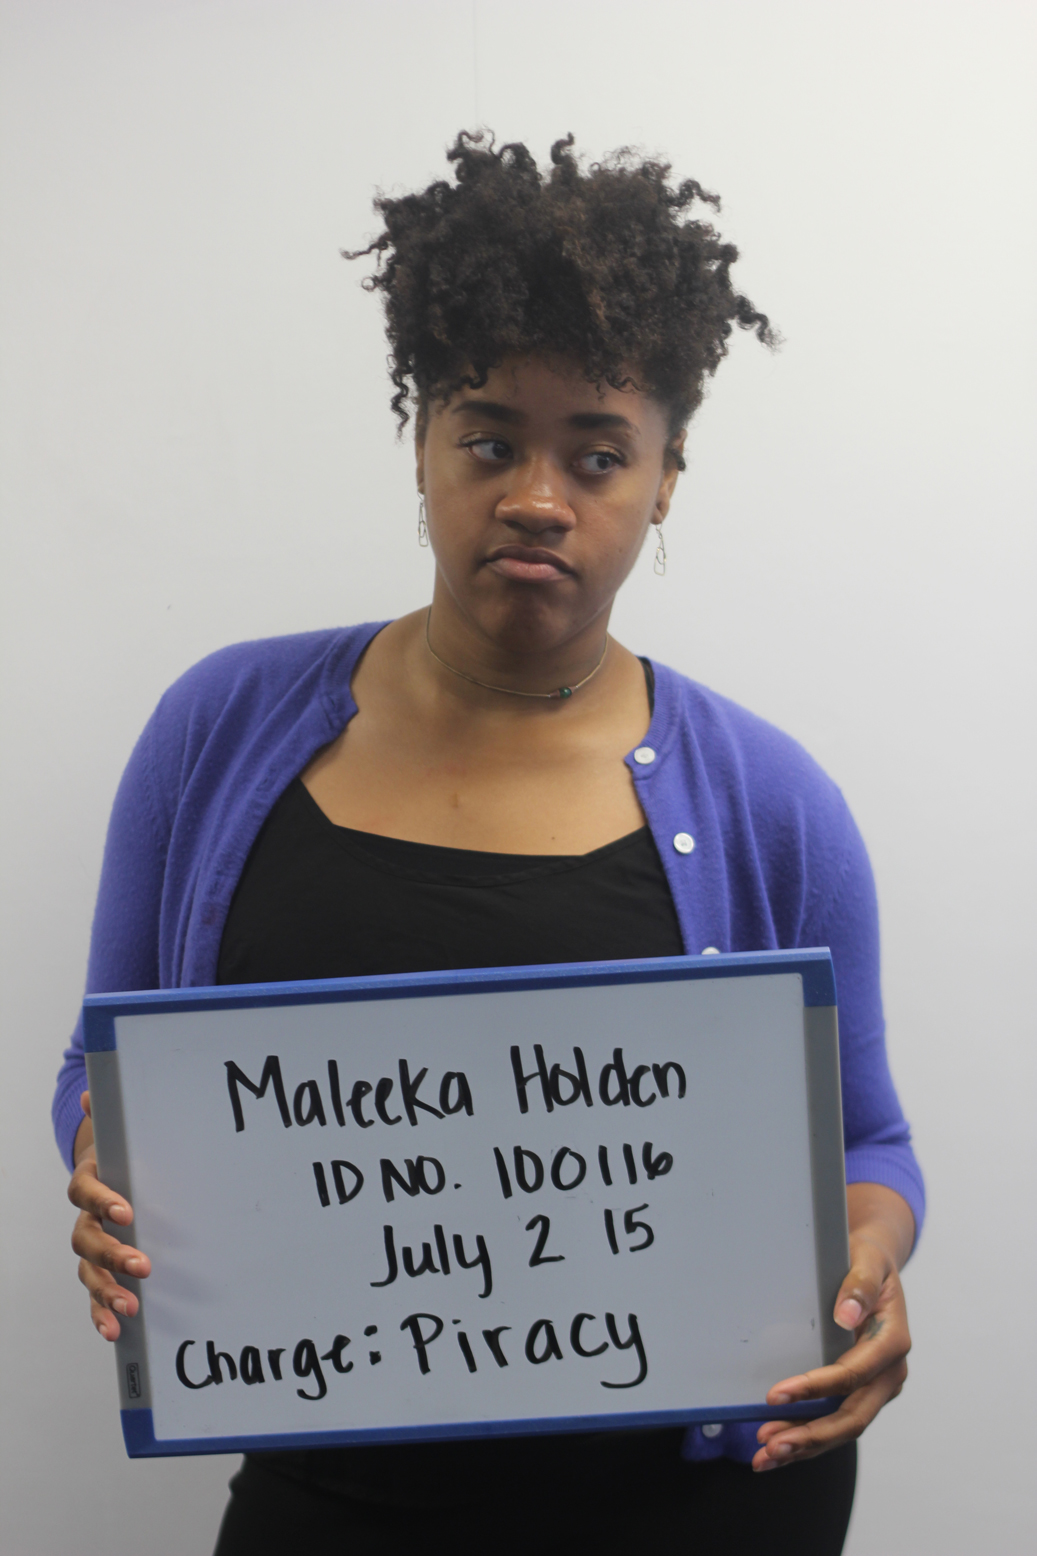 Maleeka Holden
ID NO. 100116
July 2 15
Charge: Piracy
Quartet